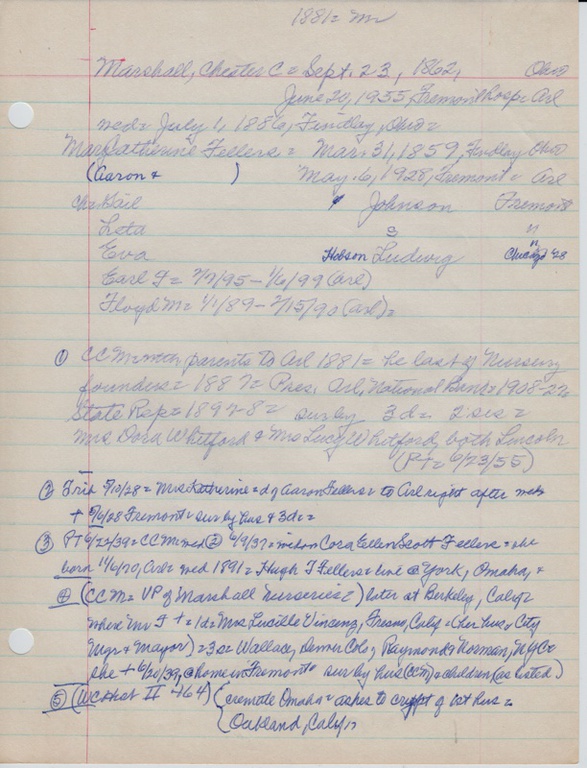 1881 = Mr
Marshall, Chester C = Sept. 23, 1862, Ohio
June 20, 1955, Fremont hosp = Arl
med = July 1, 1886, Findlay, Ohio =
Mary Catherine Fellers = Mar. 31, 1859, Findlay Ohio
(Aaron + ) May 6, 1928, Fremont = Arl
Ch: Gail Johnson Fremont
Leta s "
Eva Hobson Ludwig " Chicago '28
Earl F = 7/7/95 - 1/6/99 (Arl)
Floyd M = 1/1/89 - 2/15/90 (Arl) =
① CC M with parents to Arl 1881 = he last of Nursery
founders = 1887 = Pres. Arl, National Bank = 1908-22,
State Rep = 1897-8 = sur by 3d = 2 sis =
Mrs Dora Whitford & Mrs Lucy Whitford, both Lincoln
(PT = 6/23/55)
② Trib 5/10/28 = Mrs Katherine = d of Aaron Fellers = to Arl right after med =
+ 5/6/28 Fremont = sur by hus & 3d =
③ PT 6/22/39 = CC M med ② 6/9/37 = widow Cora Ellen Scott Fellers = she
born 11/6/70, Arl = med 1891 = Hugh F Fellers = live @ York, Omaha, +
④ (CC M = VP of Marshall Nurseries) later at Berkeley, Calif =
where Mr F + = 1d = Mrs Lucille Vincenz, Fresno, Calif = (her hus = City
Mgr & Mayor) = 3s = Wallace, Denver Colo, Raymond & Norman, NYC =
she + 6/20/39, @ home in Fremont = sur by hus (CCM) & children (as listed)
⑤ (WC Hist II - 464) (cremate Omaha = ashes to crypt of 1st hus =
Oakland, Calif)